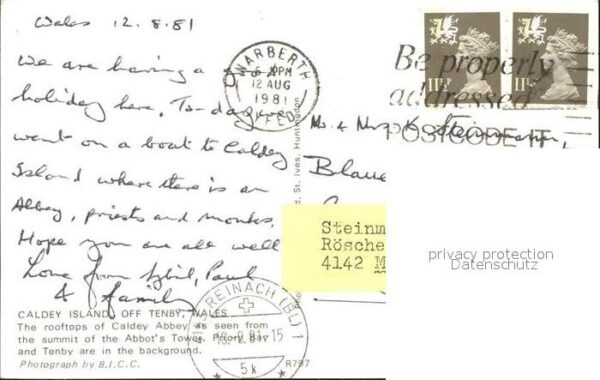 Wales 12.8.81
We are having a
holiday here. To-day we
went on a boat to Caldey
Island where there is an
Abbey, priests and monks.
Hope you are all well
Love from Sybil, Paul
& family
CALDEY ISLAND, OFF TENBY, WALES
The rooftops of Caldey Abbey as seen from
the summit of the Abbot's Tower. Priory Bay
and Tenby are in the background.
Photograph by B.I.C.C.
R797
St. Ives, Huntingdon
NARBERTH
PM
12 AUG
1981
DYFED
11½P
11½P
Be properly
addressed
POSTCODE IT
Mr. & Mrs K. Steinmann,
Blaue
Steinm
Rösche
4142 M
privacy protection
Datenschutz
REINACH (BL) 1
.81-15
5k